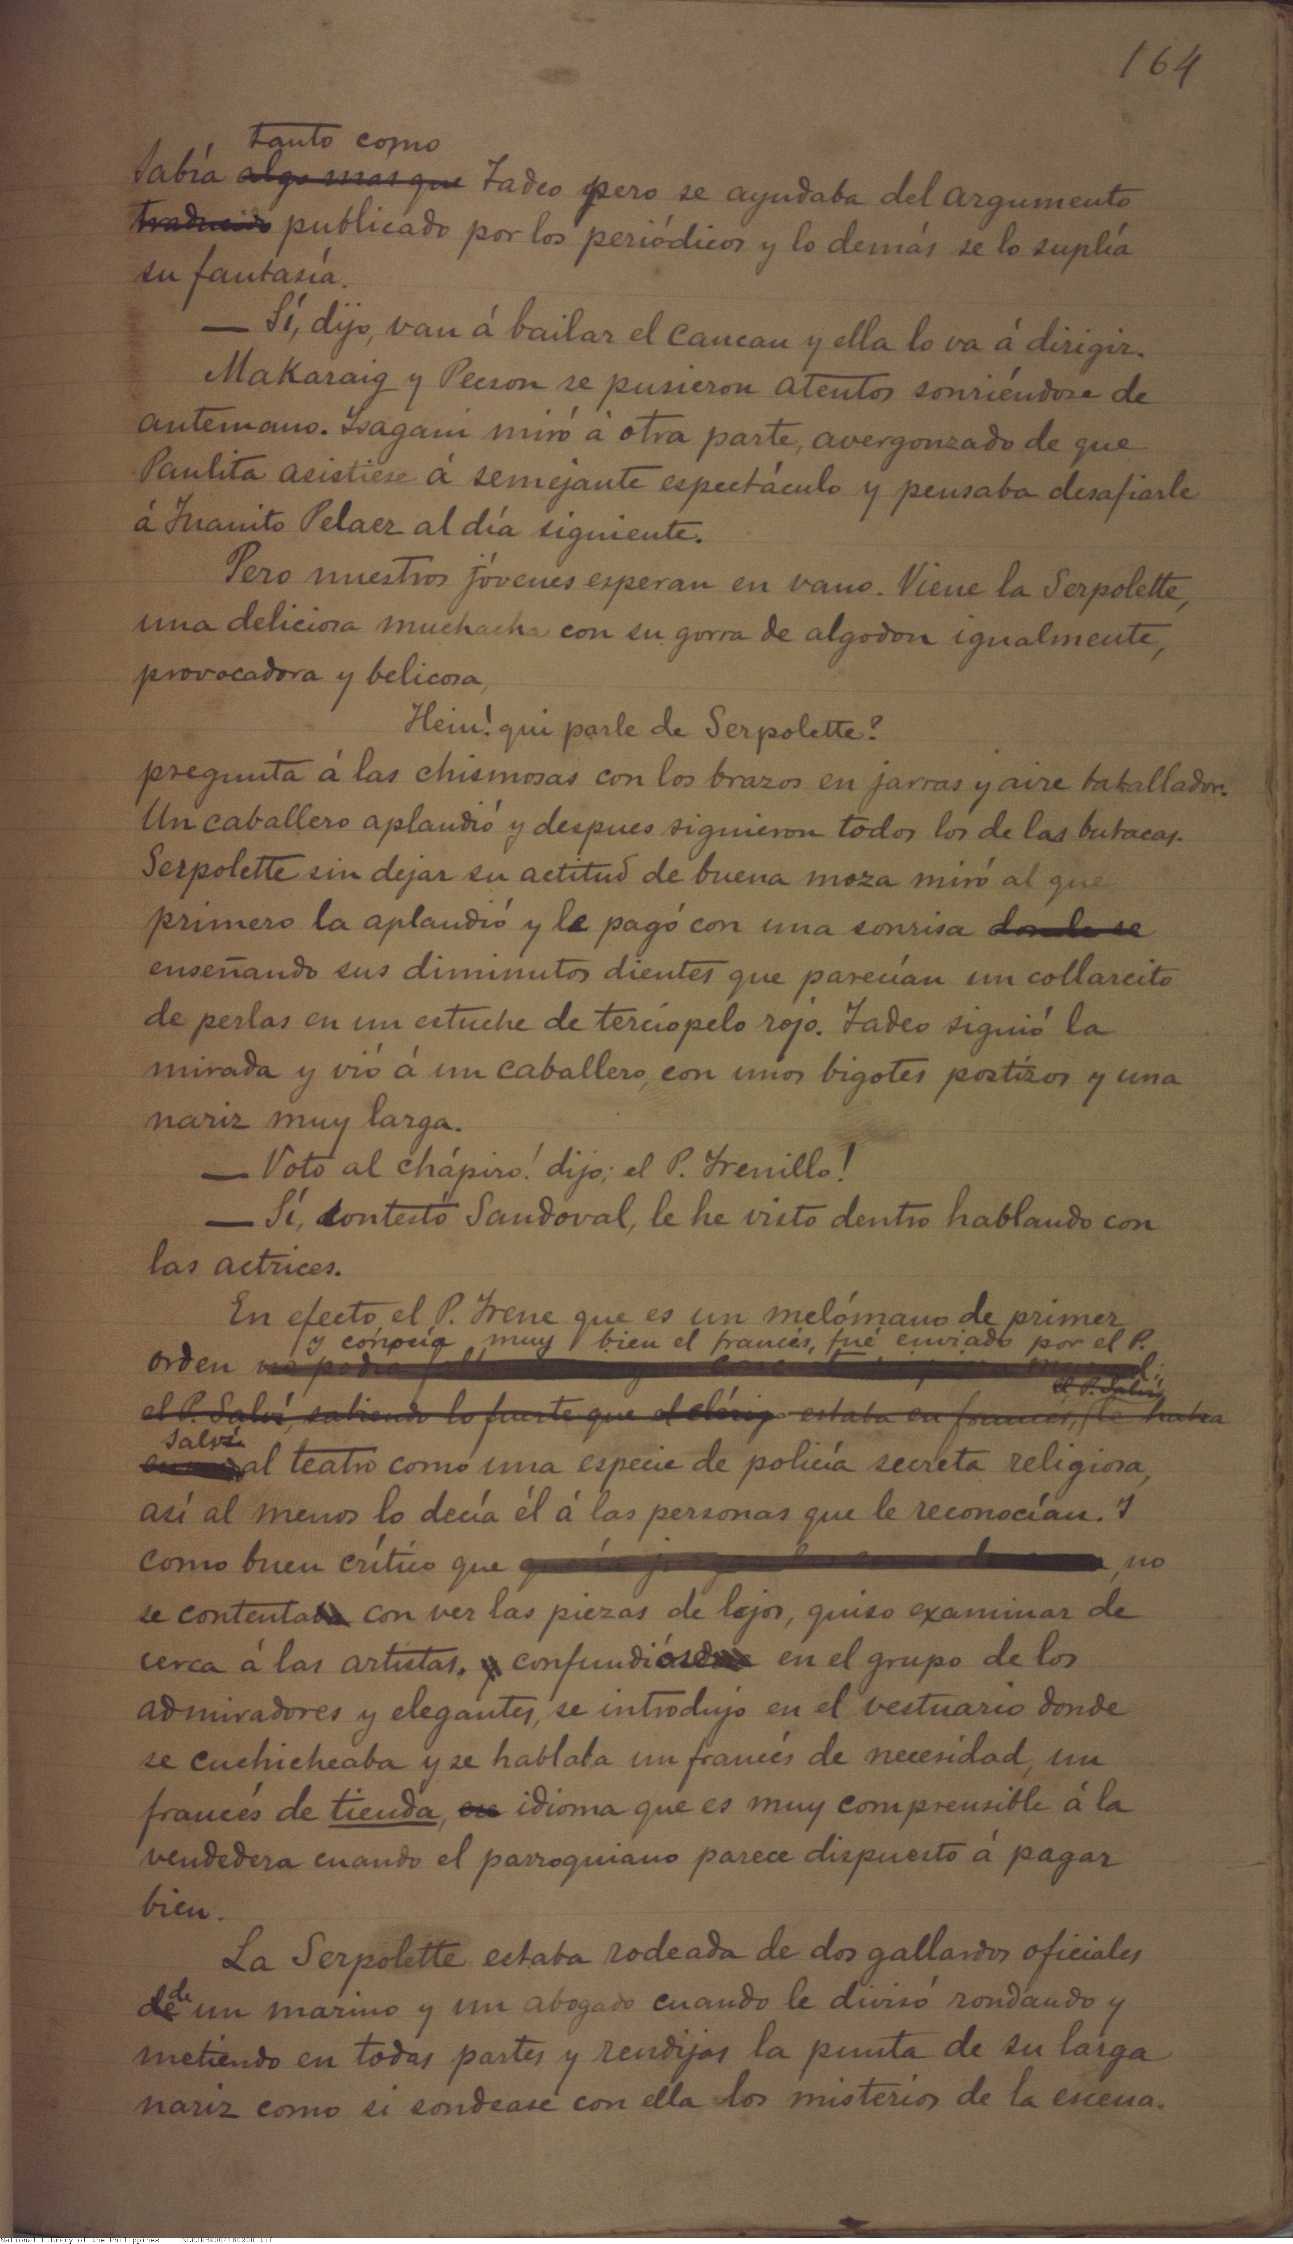 164
tanto como
sabía algo mas que Tadeo pero se ayudaba del argumento
traducido publicado por los periódicos y lo demás se lo suplía
su fantasía.
— Sí, dijo, van á bailar el cancan y ella lo va á dirigir.
Makaraig y Pecson se pusieron atentos sonriéndose de
antemano. Isagani miró á otra parte, avergonzado de que
Paulita asistiese á semejante espectáculo y pensaba desafiarle
á Juanito Pelaez al día siguiente.
Pero nuestros jóvenes esperan en vano. Viene la Serpolette,
una deliciosa muchacha con su gorra de algodon igualmente,
provocadora y belicosa,
Hein! qui parle de Serpolette?
pregunta á las chismosas con los brazos en jarras y aire batallador.
Un caballero aplaudió y despues siguieron todos los de las butacas.
Serpolette sin dejar su actitud de buena moza miró al que
primero la aplaudió y le pagó con una sonrisa donde se
enseñando sus diminutos dientes que parecían un collarcito
de perlas en un estuche de terciopelo rojo. Tadeo siguió la
mirada y vió á un caballero, con unos bigotes postizos y una
nariz muy larga.
— Voto al chápiro! dijo; el P. Irenillo!
— Sí, contestó Sandoval, le he visto dentro hablando con
las actrices.
En efecto, el P. Irene que es un melómano de primer
y conocía muy bien el francés, fué enviado por el P.
orden
el P. Salví
el P. Salví, sabiendo lo fuerte que el clérigo estaba en francés, le había
Salví
al teatro como una especie de policía secreta religiosa,
así al menos lo decía él á las personas que le reconocían. Y
como buen crítico que , no
se contentaba con ver las piezas de lejos, quiso examinar de
cerca á las artistas, y confundióse en el grupo de los
admiradores y elegantes, se introdujo en el vestuario donde
se cuchicheaba y se hablaba un francés de necesidad, un
francés de tienda, ese idioma que es muy comprensible á la
vendedera cuando el parroquiano parece dispuesto á pagar
bien.
La Serpolette estaba rodeada de dos gallardos oficiales
de
de un marino y un abogado cuando le divisó rondando y
metiendo en todas partes y rendijas la punta de su larga
nariz como si sondease con ella los misterios de la escena.